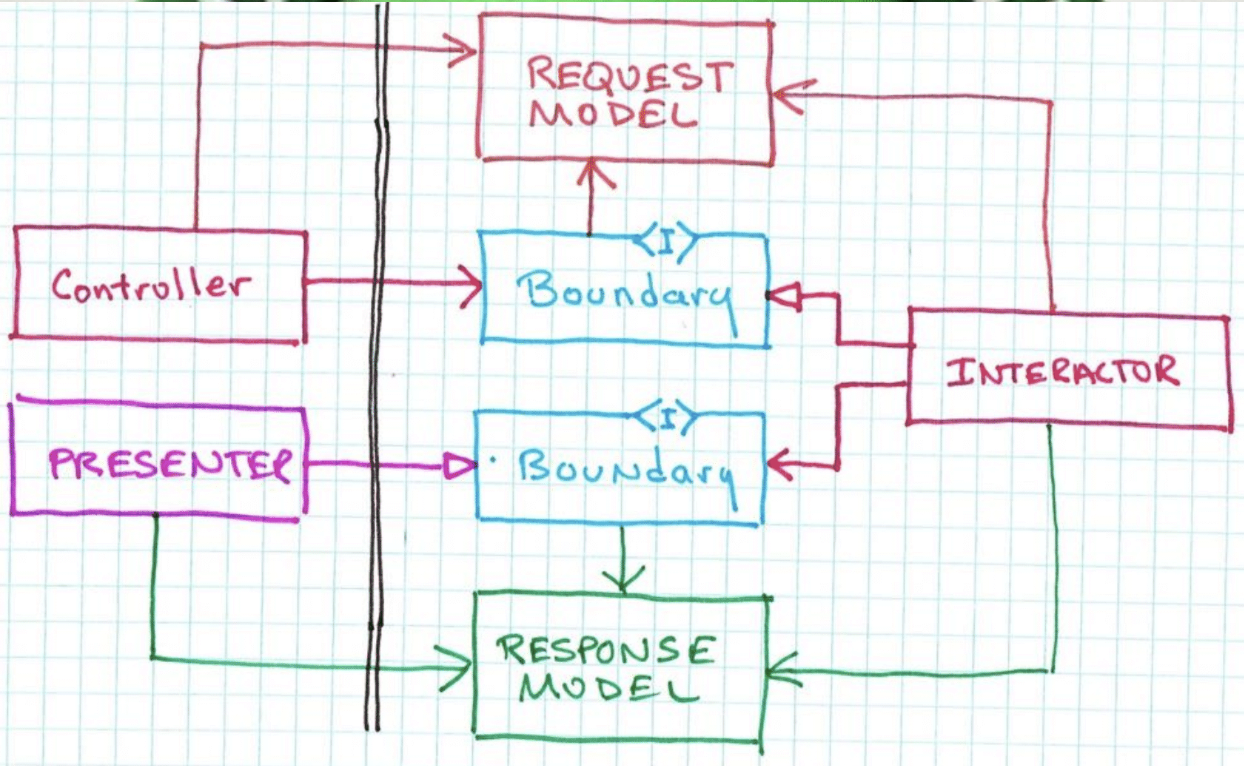 REQUEST
MODEL
<I>
Controller
Boundary
INTERACTOR
<I>
PRESENTER
Boundary
RESPONSE
MODEL